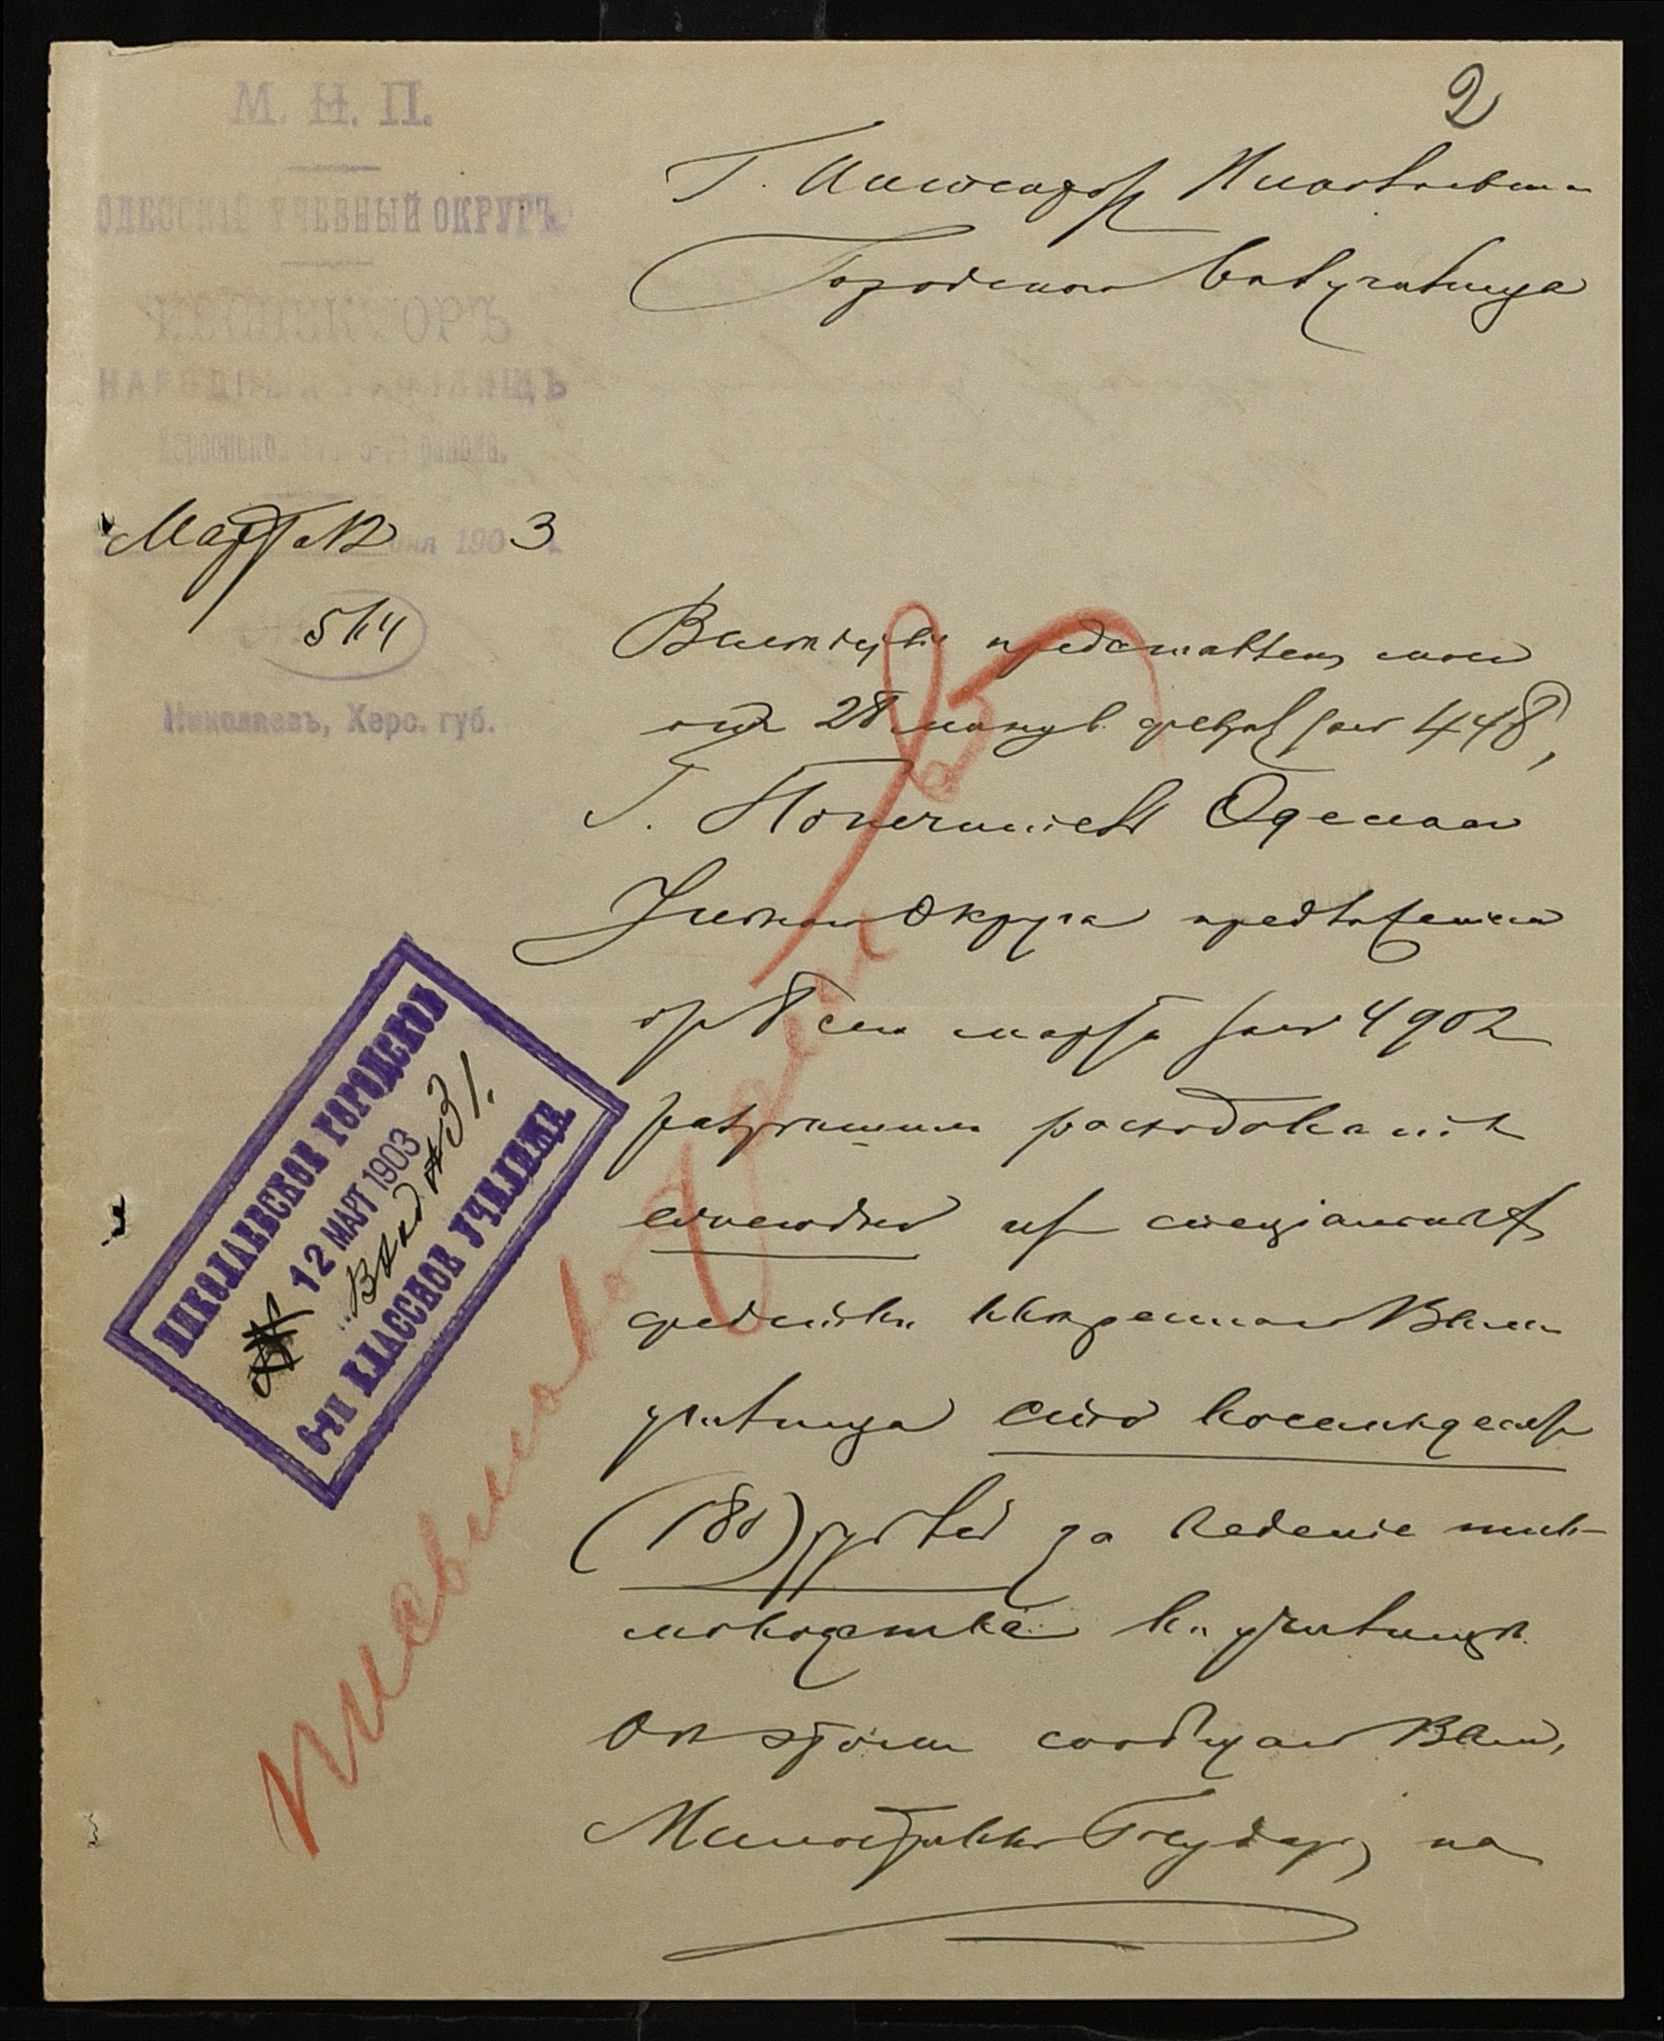 2
М. Н. П.
ОДЕССКІЙ УЧЕБНЫЙ ОКРУГЪ
ИНСПЕКТОРЪ
НАРОДНЫХЪ УЧИЛИЩЪ
Херсонской губ. района.
Марта 12 дня 1903
514
Николаевъ, Херс. губ.
Г. Инспектору Николаевскаго
Городского училища
Вслѣдствіе представленія моего
отъ 28 минув. февраля за № 448,
Г. Попечитель Одесскаго
Учебнаго Округа предложеніемъ
отъ 8 сего марта за № 4902
разрѣшилъ расходованіе
ежегодно изъ спеціальныхъ
средствъ ввѣреннаго Вамъ
училища сто восемьдесятъ
(180) рублей за веденіе пись-
моводства въ училищѣ.
Объ этомъ сообщаю Вамъ,
Милостивый Государь, на
НИКОЛАЕВСКОЕ ГОРОДСКОЕ
12 МАРТ 1903
Вход. № 31.
6-И КЛАССНОЕ УЧИЛИЩЕ
Письмоводителю